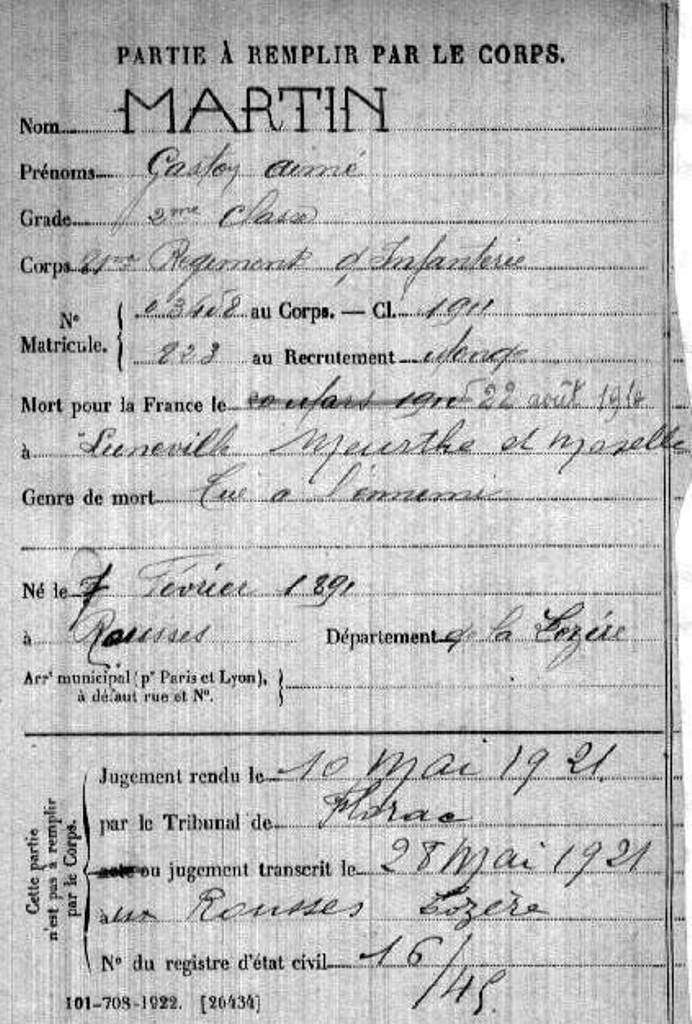 PARTIE À REMPLIR PAR LE CORPS.
Nom MARTIN
Prénoms Gaston Aimé
Grade 2me Classe
Corps Régiment d'Infanterie
N° Matricule. au Corps. — Cl. 1911
223 au Recrutement
Mort pour la France le 22 août 1914
à Luneville Meurthe et Moselle
Genre de mort Tué a l'ennemi
Né le 7 Fevrier 1891
à Rousses Département de la Lozére
Arrt municipal (pr Paris et Lyon), à défaut rue et N°.
Cette partie n'est pas à remplir par le Corps.
Jugement rendu le 10 Mai 1921.
par le Tribunal de Florac
acte ou jugement transcrit le 28 Mai 1921
aux Rousses Lozère
N° du registre d'état civil 16/45.
101-708-1922. [26434]